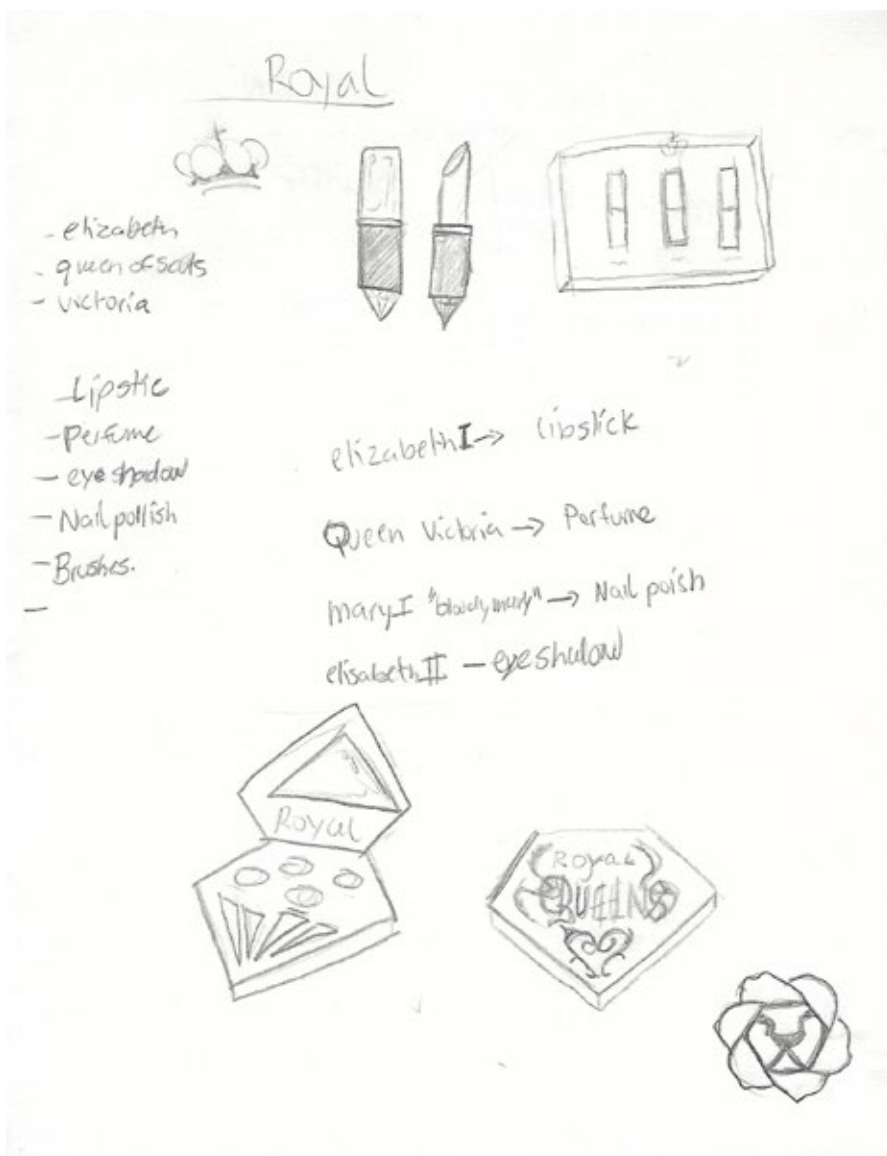 Royal
- elizabeth
- queen of scots
- victoria
- Lipstic
- Perfume
- eye shadow
- Nail pollish
- Brushes.
-
elizabeth I → libstick
Queen Victoria → Perfume
mary I "bloody mary" → Nail poish
elisabeth II - eyeshadow
Royal
ROyaL
QUEENS